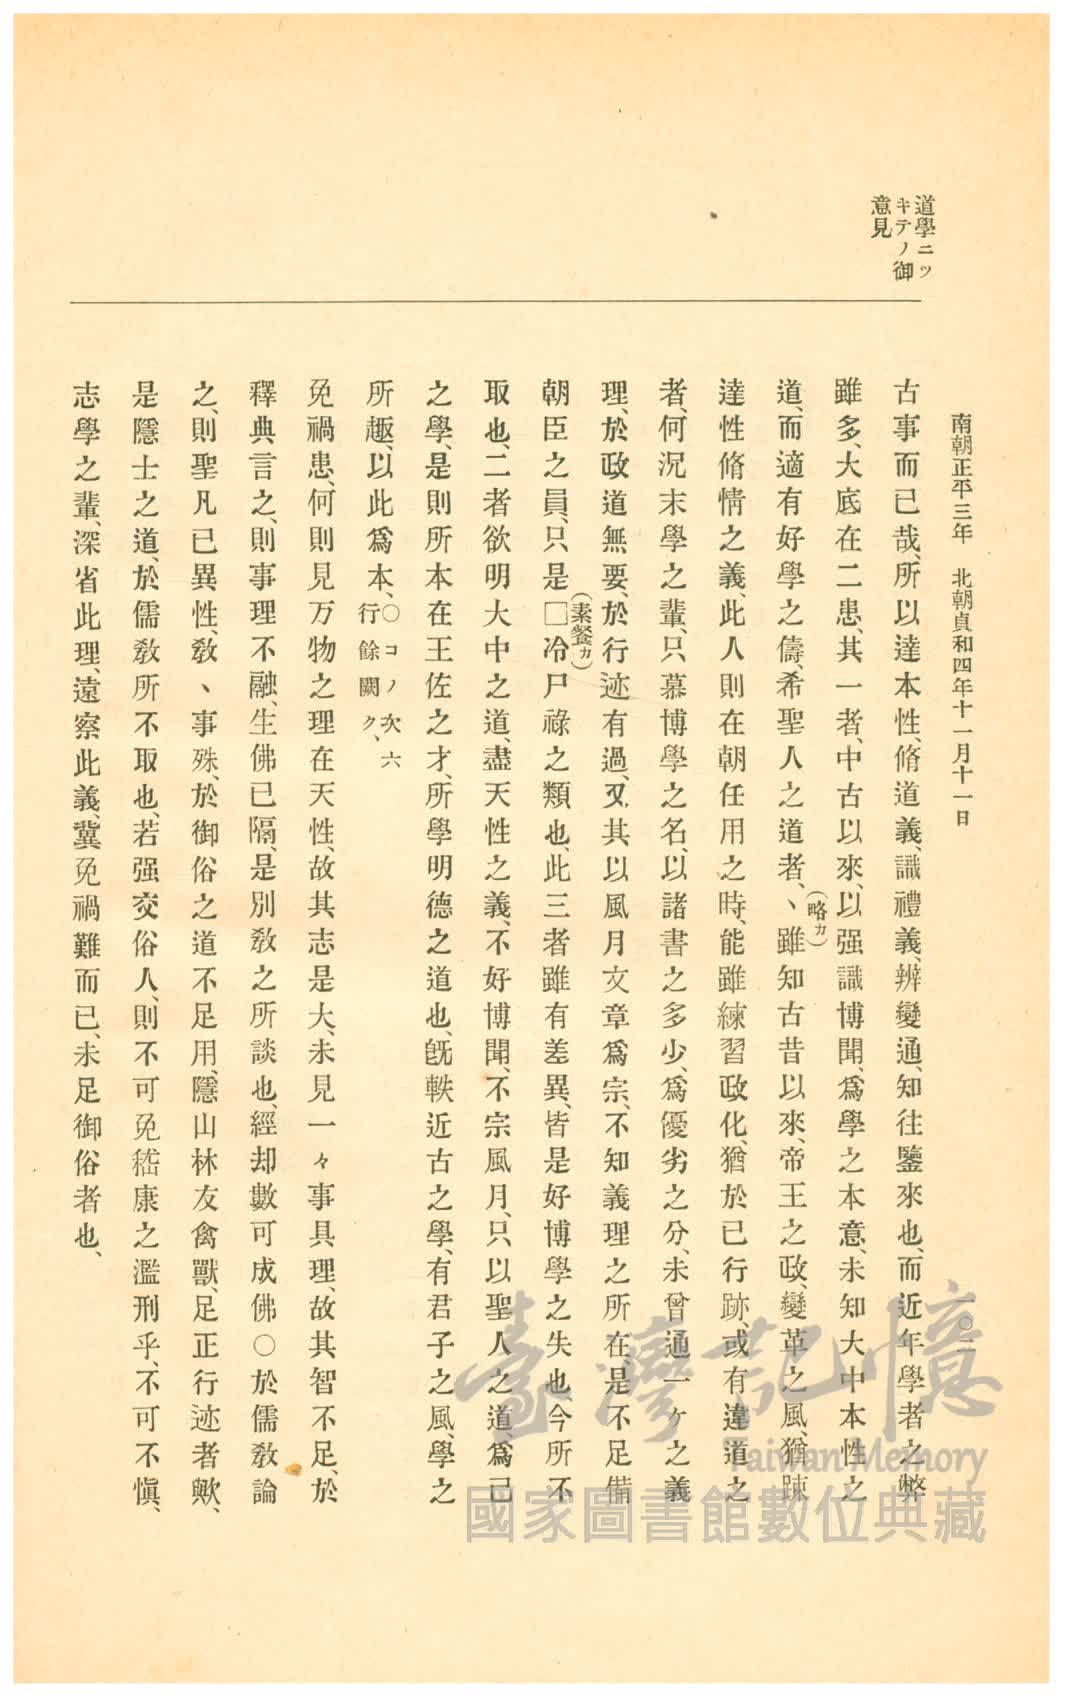 南朝正平三年　北朝貞和四年十一月十一日
一〇二
道學ニツ
キテノ御
意見
古事而已哉、所以達本性、脩道義、識禮義、辨變通、知往鑒來也、而近年學者之弊
雖多、大底在二患、其一者、中古以來、以强識博聞、爲學之本意、未知大中本性之
(略カ)
道、而適有好學之儔、希聖人之道者、、雖知古昔以來、帝王之政、變革之風、猶踈
達性脩情之義、此人則在朝任用之時、能雖練習政化、猶於已行跡、或有違道之
者、何況末學之輩、只慕博學之名、以諸書之多少、爲優劣之分、未曾通一ヶ之義
理、於政道無要、於行迹有過、又其以風月文章爲宗、不知義理之所在、是不足備
(素餐カ)
朝臣之員、只是□冷尸祿之類也、此三者雖有差異、皆是好博學之失也、今所不
取也、二者欲明大中之道、盡天性之義、不好博聞、不宗風月、只以聖人之道、爲己
之學、是則所本在王佐之才、所學明德之道也、旣軼近古之學、有君子之風、學之
所趣、以此爲本、○コノ次六
行餘闕ク、
免禍患、何則見万物之理在天性、故其志是大、未見一々事具理、故其智不足、於
釋典言之、則事理不融、生佛已隔、是別敎之所談也、經却數可成佛○於儒敎論
之、則聖凡已異性、敎、事殊、於御俗之道不足用、隱山林友禽獸、足正行迹者歟、
是隱士之道、於儒敎所不取也、若强交俗人、則不可免嵇康之濫刑乎、不可不愼、
志學之輩、深省此理、遠察此義、冀免禍難而已、未足御俗者也、
臺灣記憶
Taiwan Memory
國家圖書館數位典藏